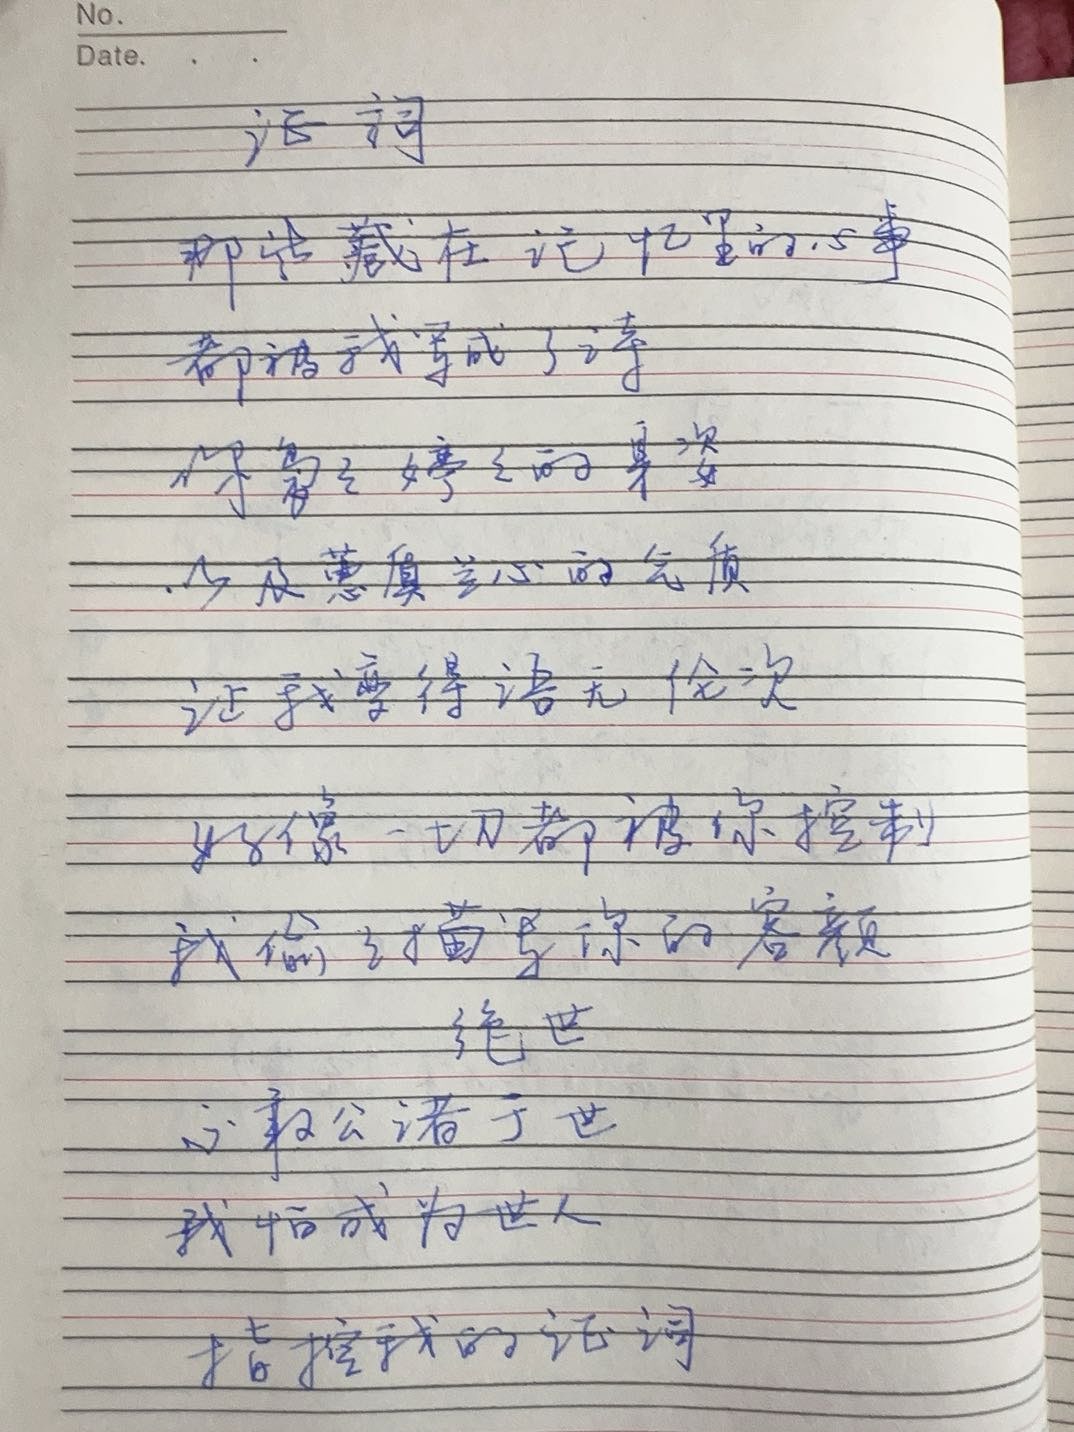 No.
Date.
证词
那些藏在记忆里的心事
都被我写成了诗
你亭亭婷婷的身姿
以及蕙质兰心的气质
让我变得语无伦次
好像一切都被你控制
我偷偷描写你的容颜
绝世
不敢公诸于世
我怕成为世人
指控我的证词